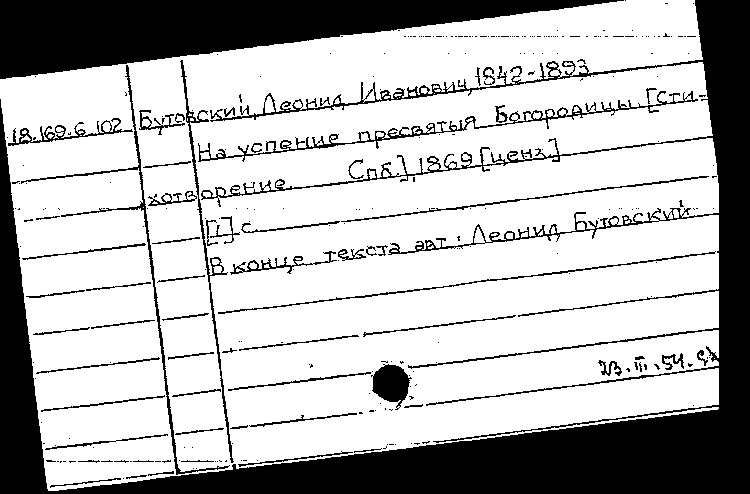 18.169.6.102 Бутовский, Леонид Иванович, 1842-1893
На успение пресвятыя Богородицы. [Сти-
хотворение. Спб.], 1869 [ценз.]
[1] с.
В конце текста авт.: Леонид Бутовский
23.III.54.